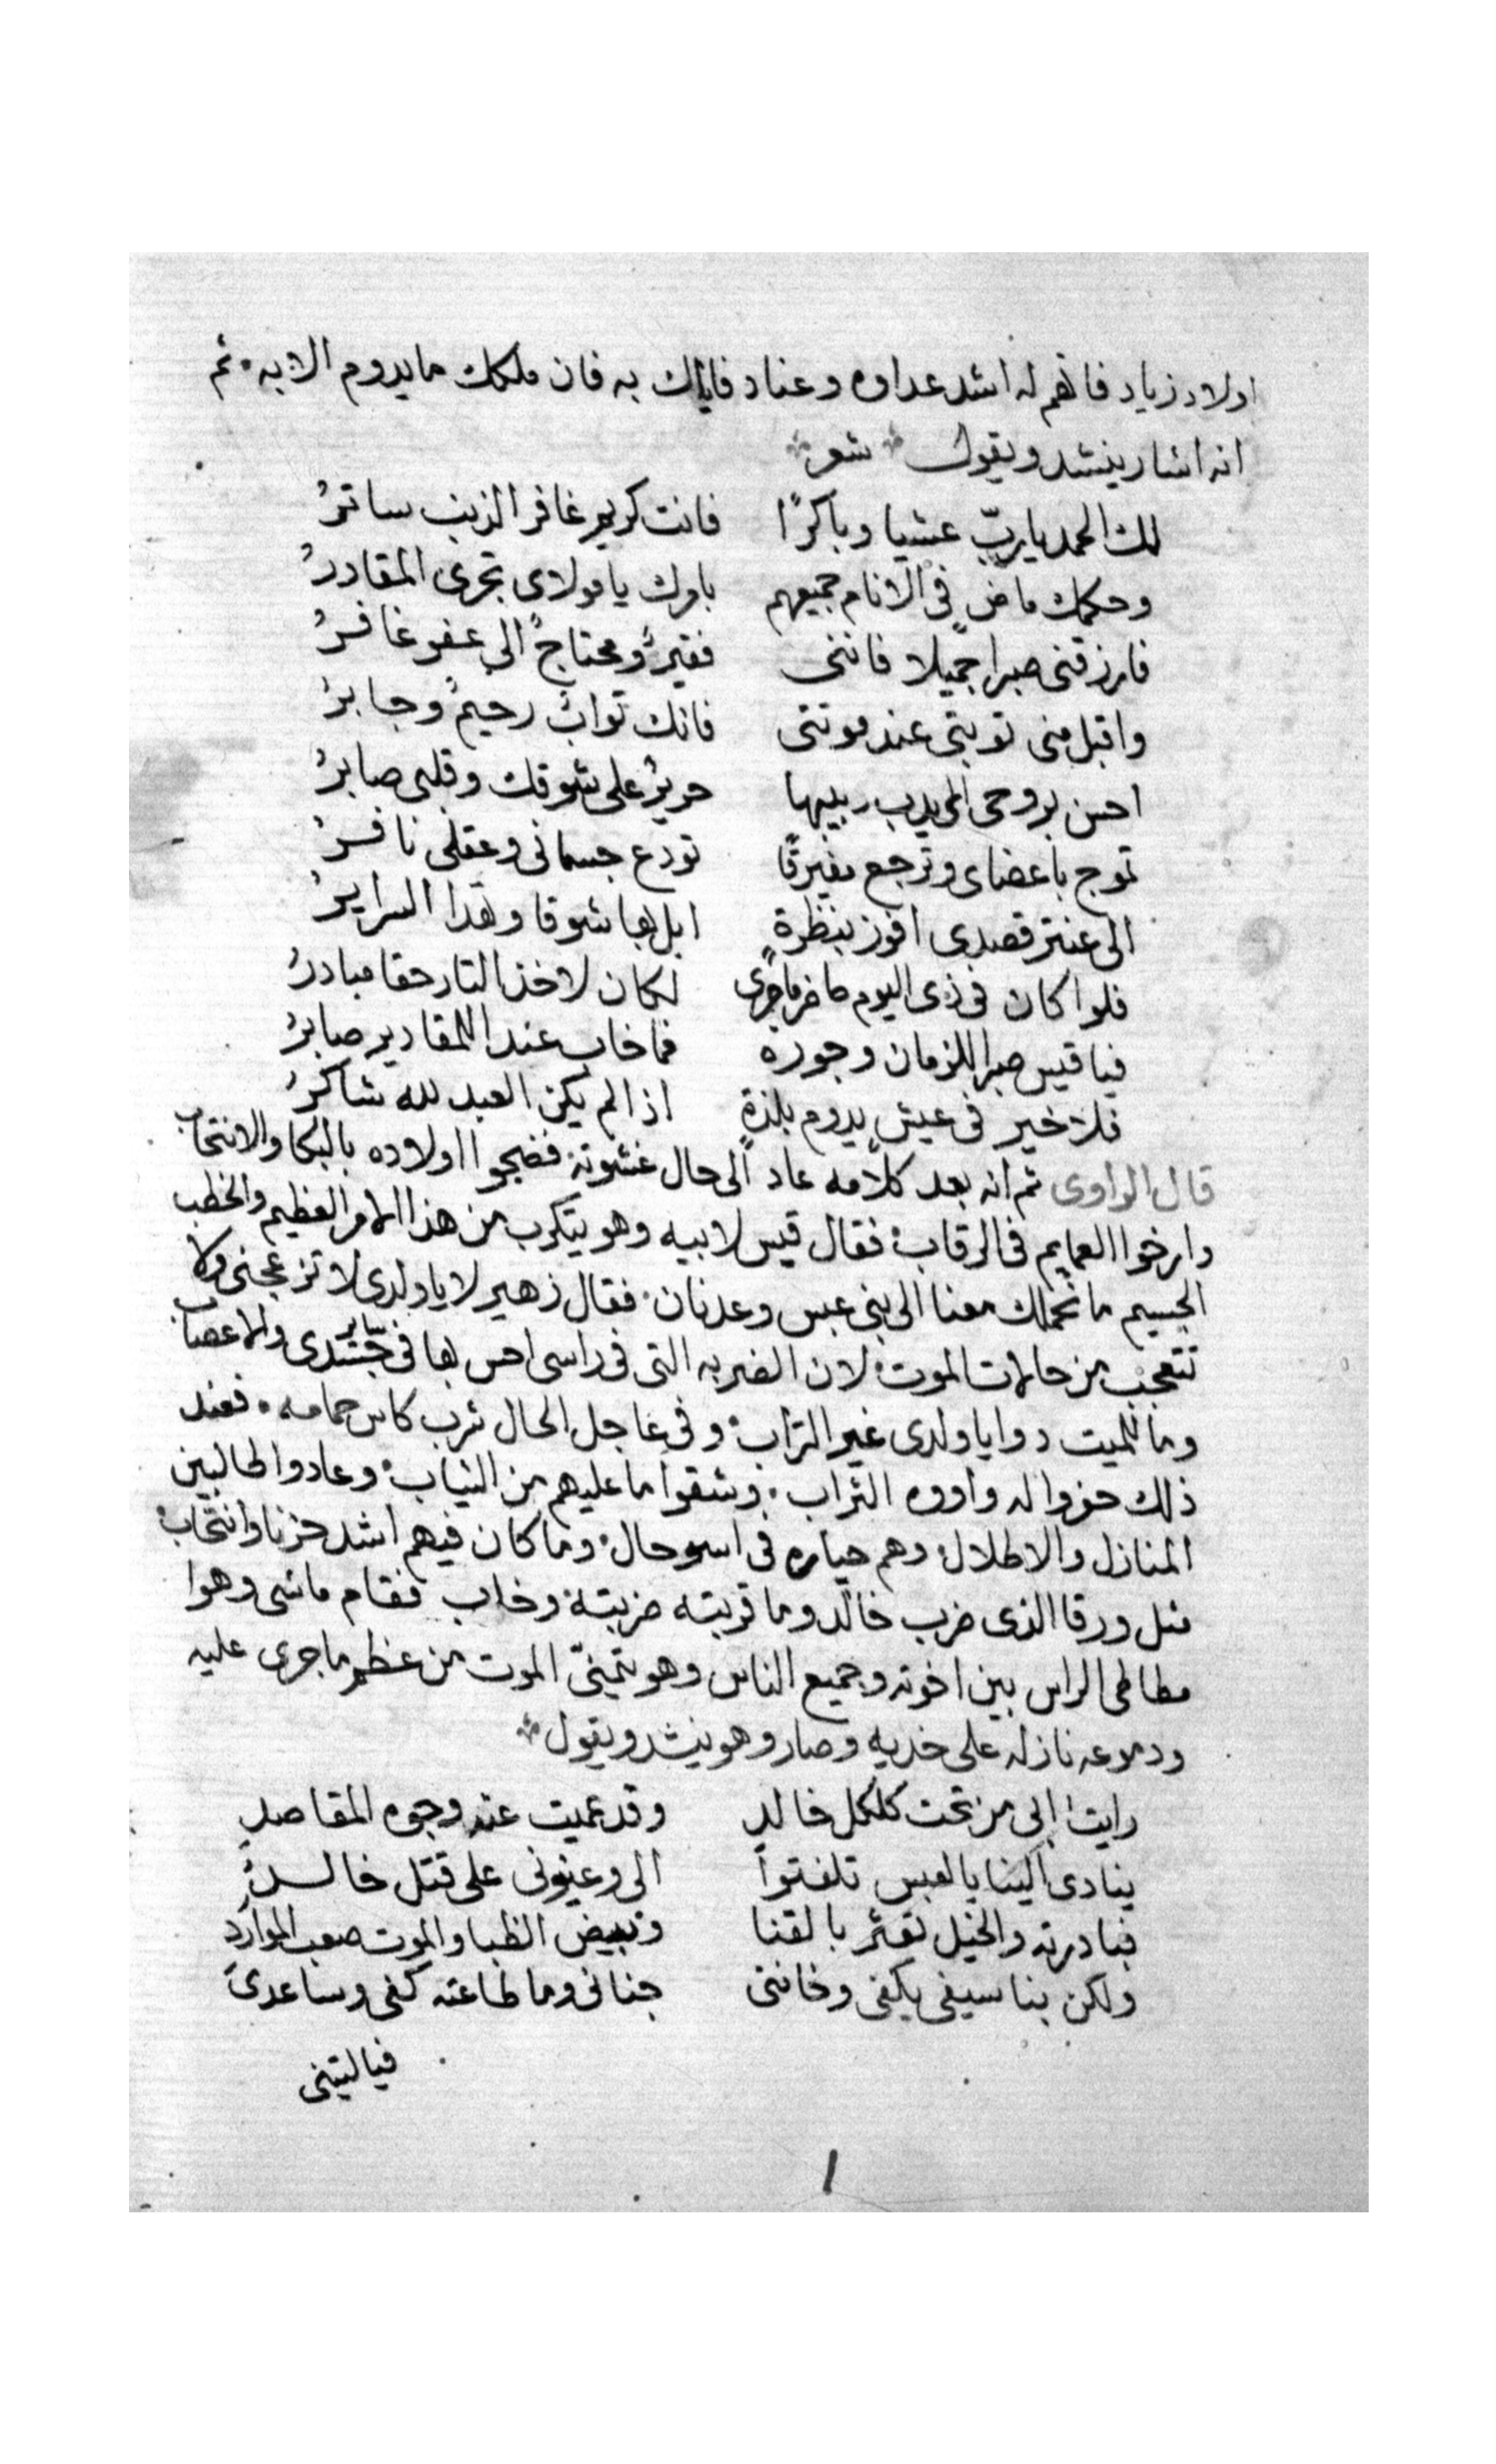 اولاد زياد فانهم له اشد عداوه وعناد فاياك به فان ملكك ما يدوم الا به ثم
انه اشار ينشد ويقول شعر
لك الحمد يا ربّ عشيا وباكرًا فانت كريم غافر الذنب ساترُ
وحكمك ماضٍ في الانام جميعهم بامرك يا مولاى تجرى المقادرُ
فارزقنى صبرا جميلا فاننى فقيرٌ ومحتاجٌ الى عفو غافرُ
واقبل منى توبتى عند موتتى فانك توابٌ رحيمٌ وجابرُ
احسن بروحى على شوقك وقلبى صابرُ
تموج باعضاى وترجع تودع جسمانى وعقلى نافرُ
الى عنتر قصدى افوز بنظرةٍ ابل بها شوقا وهذا السرايرُ
فلوا كان فى ذى اليوم حاضر ما جرى لكان لاخذ التار حقا مبادرُ
فيا قيس صبرا للزمان وجوره فما خاب عند المقادير صابرُ
فلا خير فى عيشٍ يدوم بلذةٍ اذا لم يكن العبد لله شاكرُ
قال الراوى ثم انه بعد كلامه عاد الى حال غشوته فضجوا اولاده بالبكا والانتحاب
وارخوا العمايم فى الرقاب فقال قيس لابيه وهو يتكرب من هذا الامر العظيم والخطب
الجسيم ما نحملك معنا الى بنى عبس وعدنان فقال زهير لا يا ولدى لا تزعجنى ولا
تتعجب من حالات الموت لان الضربه التى فى راسى احس بها فى ساير جسدى والاعصاب
وما للميت دوا يا ولدى غير التراب وفى عاجل الحال شرب كاس حمامه فعند
ذلك حفروا له واروه التراب وشقوا ما عليهم من الثياب وعادوا طالبين
المنازل والاطلال وهم حياره فى اسو حال وما كان فيهم اشد حزنا وانتحاب
مثل ورقا الذى ضرب خالد وما قربته ضربته وخاب فقام ماشى وهوا
مطاطى الراس بين اخوته وجميع الناس وهو يتمنىّ الموت من عظم ما جرى عليه
ودموعه نازله على خديه وصار وهو ينشد ويقول
رايت ابى من تحت كلكل خالدٍ وقد عميت عنه وجوه المقاصدِ
ينادى الينا يالعبس تلفتوا الى وعينونى على قتل خالدُ
فبادرته والخيل تعثر بالقنا وبيض الظبا والموت صعب الموارد
ولكن نبا سيفى بكفى وخاننى جنانى وما طاعنه كفى وساعدى
فياليتنى
١